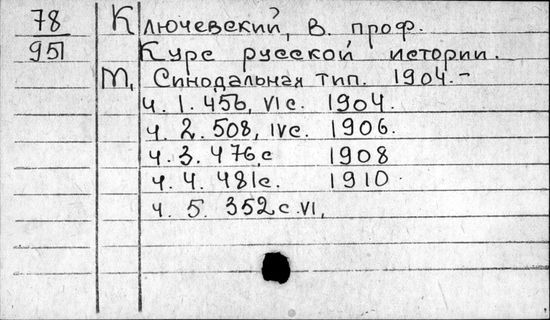 78 Ключевский, В. проф.
951 Курс русской истории.
М, Синодальная тип. 1904.-
ч. 1. 456, VI с. 1904.
ч. 2. 508, IV с. 1906.
ч. 3. 476 с 1908
ч. 4. 481 с. 1910.
ч. 5. 352 с. VI,